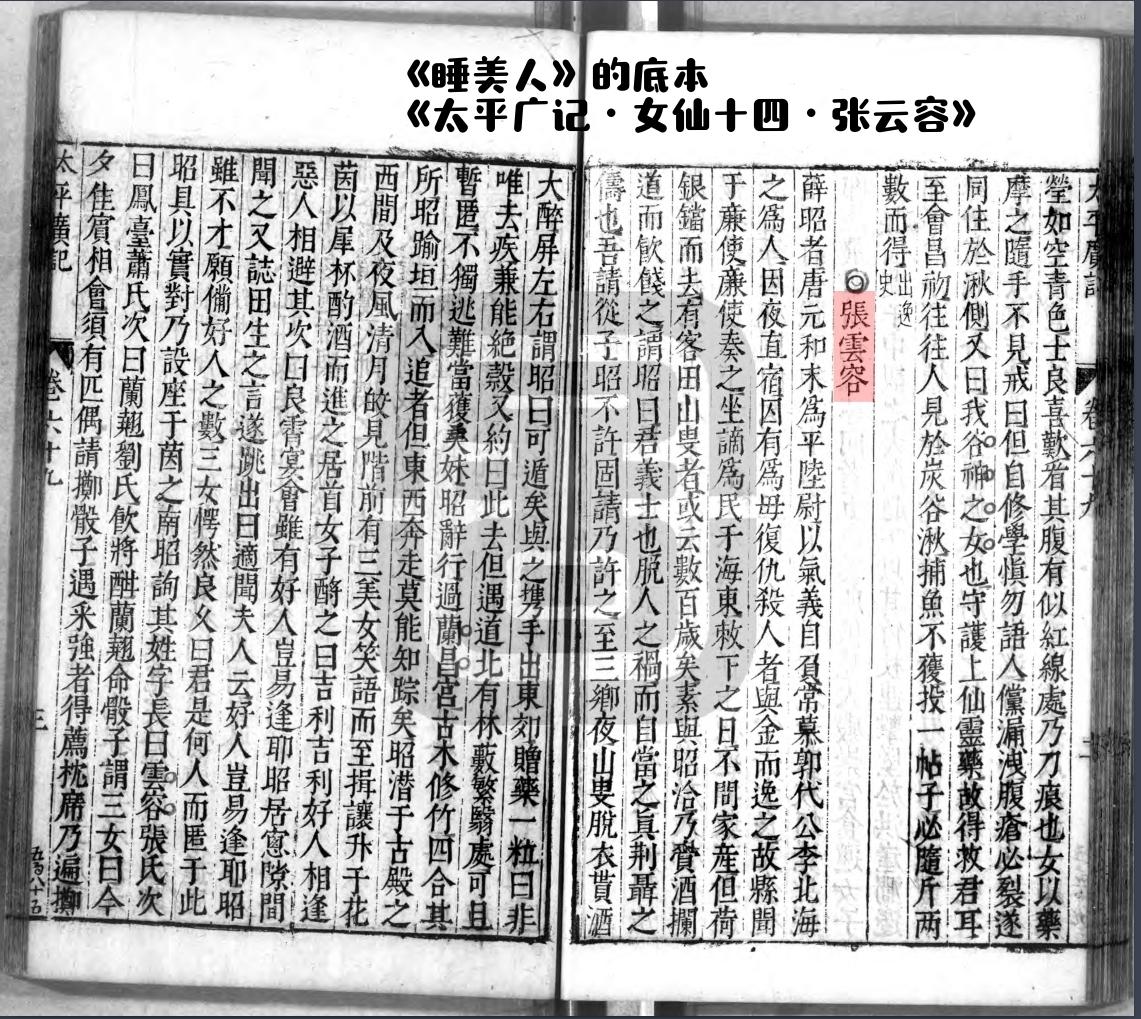 《睡美人》的底本
《太平广记·女仙十四·张云容》
太平廣記
卷六十九
瑩如空青色士良喜歎看其腹有似紅線處乃刀痕也女以藥
摩之隨手不見戒曰但自修學慎勿語人儻漏洩腹瘡必裂遂
同住於湫側又曰我谷神之女也守護上仙靈藥故得救君耳
至會昌初往往人見於炭谷湫捕魚不獲投一帖子必隨斤两
數而得出逸史
張雲容
薛昭者唐元和末爲平陸尉以氣義自負常慕郭代公李北海
之爲人因夜直宿囚有爲母復仇殺人者與金而逸之故縣聞
于廉使廉使奏之坐謫爲民于海東敕下之日不問家産但荷
銀鐺而去有客田山叟者或云數百歲矣素與昭洽乃賫酒攔
道而飲餞之謂昭曰君義士也脱人之禍而自當之真荆聶之
儔也吾請從子昭不許固請乃許之至三鄉夜山叟脱衣貰酒
大醉屏左右謂昭曰可遁矣與之携手出東郊贈藥一粒曰非
唯去疾兼能絶穀又約曰此去但遇道北有林藪繁翳處可且
暫匿不獨逃難當獲美姝昭辭行過蘭昌宫古木修竹四合其
所昭踰垣而入追者但東西奔走莫能知踪矣昭潛于古殿之
西間及夜風清月皎見階前有三美女笑語而至揖讓升于花
茵以犀杯酌酒而進之居首女子酹之曰吉利吉利好人相逢
惡人相避其次曰良宵宴會雖有好人豈易逢耶昭居窓隙間
聞之又誌田生之言遂跳出曰適聞夫人云好人豈易逢耶昭
雖不才願備好人之數三女愕然良久曰君是何人而匿于此
昭具以實對乃設座于茵之南昭詢其姓字長曰雲容張氏次
曰鳳臺蕭氏次曰蘭翹劉氏飲將酣蘭翹命骰子謂三女曰今
夕佳賓相會須有匹偶請擲骰子遇采強者得薦枕席乃遍擲
太平廣記
卷六十九
三